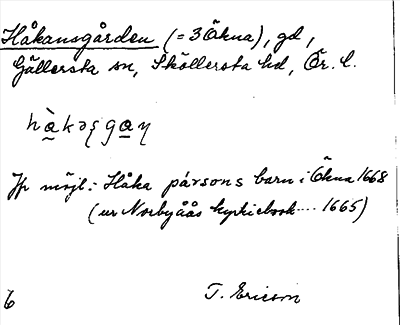 Håkansgården (= 3 Ökna), gd,
Gällersta sn, Sköllersta hd, Ör. l.
hà̱kəʂga̱ɳ
Jfr möjl.: Håka pårsons barn i Ökna 1668
(ur Norbyåås kyrkiebook .... 1665)
6
T. Ericson